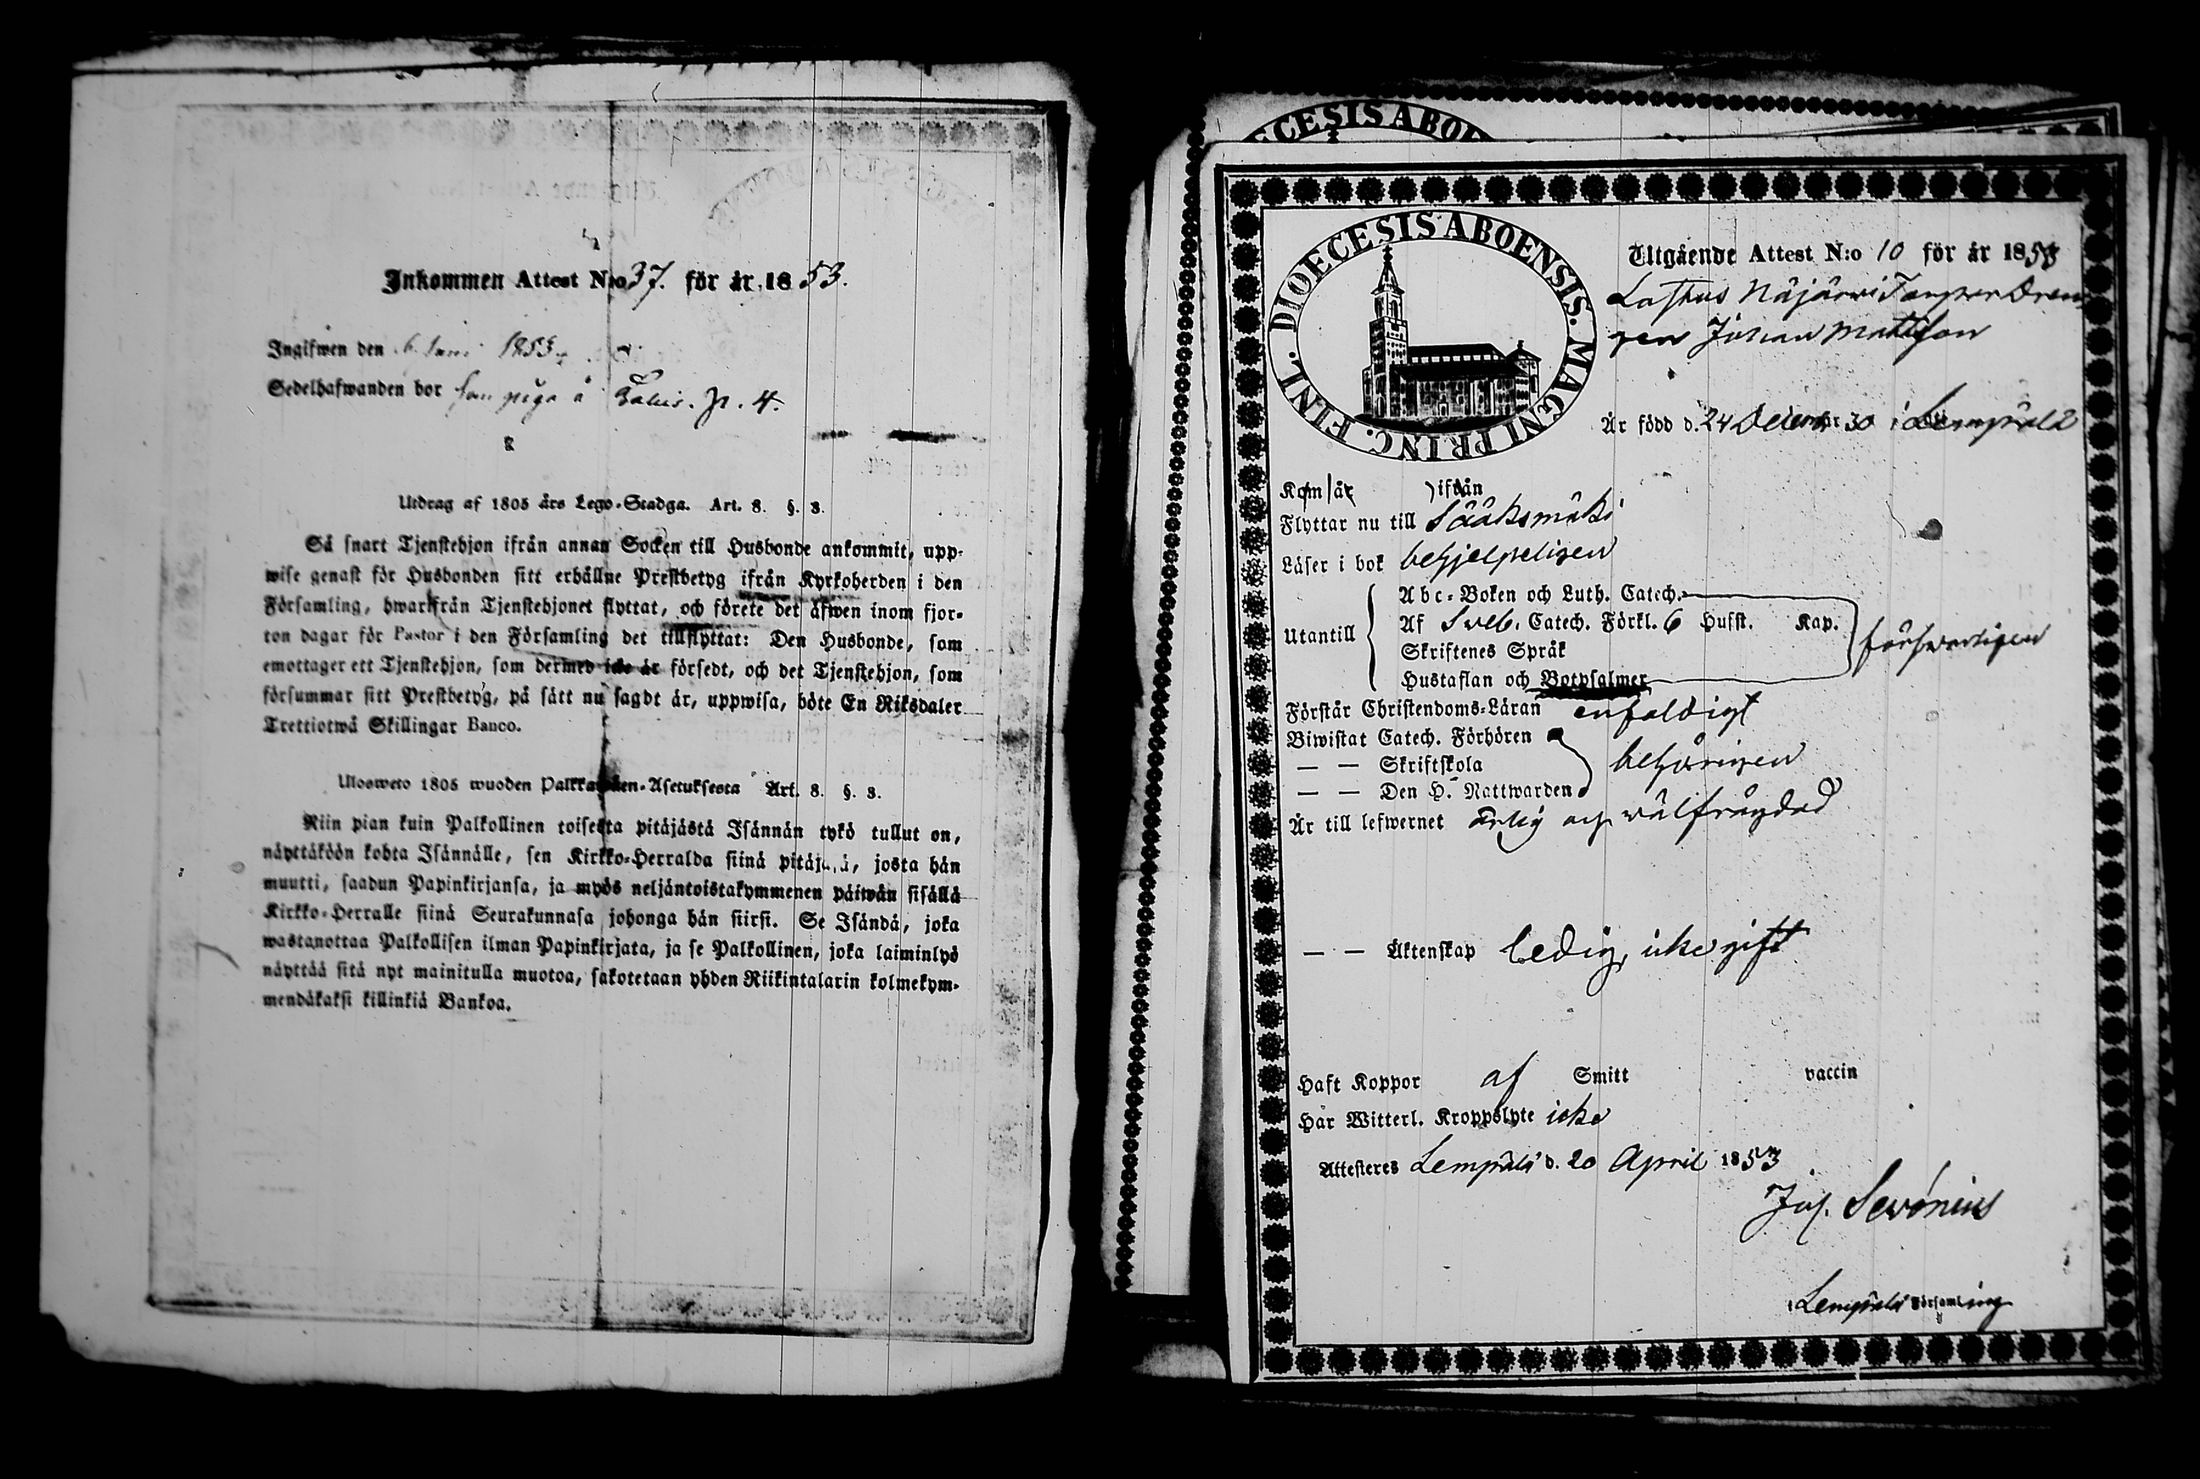 Inkommen Attest N:o 37. för år 1853.
Ingifwen den 6 Juni 1853
Sedelhafwanden bor som piga å p. 4.
Utdrag af 1805 års Lego-Stadga. Art. 8. §. 3.
Så snart Tjenstehjon ifrån annan Socken till Husbonde ankommit, upp-
wise genast för Husbonden sitt erhållne Prestbetyg ifrån Kyrkoherden i den
Församling, hwarifrån Tjenstehjonet flyttat, och förete det äfwen inom fjor-
ton dagar för Pastor i den Församling det tillflyttat: Den Husbonde, som
emottager ett Tjenstehjon, som dermed icke är försedt, och det Tjenstehjon, som
försummar sitt Prestbetyg, på sätt nu sagdt är, uppwisa, böte En Riksdaler
Trettiotwå Skillingar Banco.
Ulosweto 1805 wuoden Palkkawäen-Asetuksesta Art. 8. §. 3.
Niin pian kuin Palkollinen toisesta pitäjästä Isännän tykö tullut on,
näyttäköön kohta Isännälle, sen Kirkko-Herralda siinä pitäjäsä, josta hän
muutti, saadun Papinkirjansa, ja myös neljäntoistakymmenen päiwän sisällä
Kirkko-Herralle siinä Seurakunnasa johonga hän siirsi. Se Isändä, joka
wastanottaa Palkollisen ilman Papinkirjata, ja se Palkollinen, joka laiminlyö
näyttää sitä nyt mainitulla muotoa, sakotetaan yhden Riikintalarin kolmekym-
mendäkaksi killinkiä Bankoa.
ECESIS ABOE
DIOECESIS ABOENSIS. MAGNI PRINC. FINL.
Utgående Attest N:o 10 för år 1853
Drän
gen Johan Mattsson
Är född d. 24 December 30 i Lempälä
Kom år ifrån
Flyttar nu till Sääksmäki
Läser i bok behjelpeligen
Utantill
Abc-Boken och Luth. Catech.
Af Sveb. Catech. Förkl. 6 Hufst. Kap.
Skriftenes Språk
Hustaflan och Botpsalmer
försvarligen
Förstår Christendoms-Läran enfaldigt
Biwistat Catech. Förhören
— — Skriftskola behörigen
— — Den H. Nattwarden
Är till lefwernet ärlig och wälfrägdad
— — Äktenskap ledig, icke gift
Haft Koppor af Smitt vaccin
Har Witterl. Kroppslyte icke
Attesteres Lempälä d. 20 April 1853
Jos. Sevónius
i Lempälä Församling